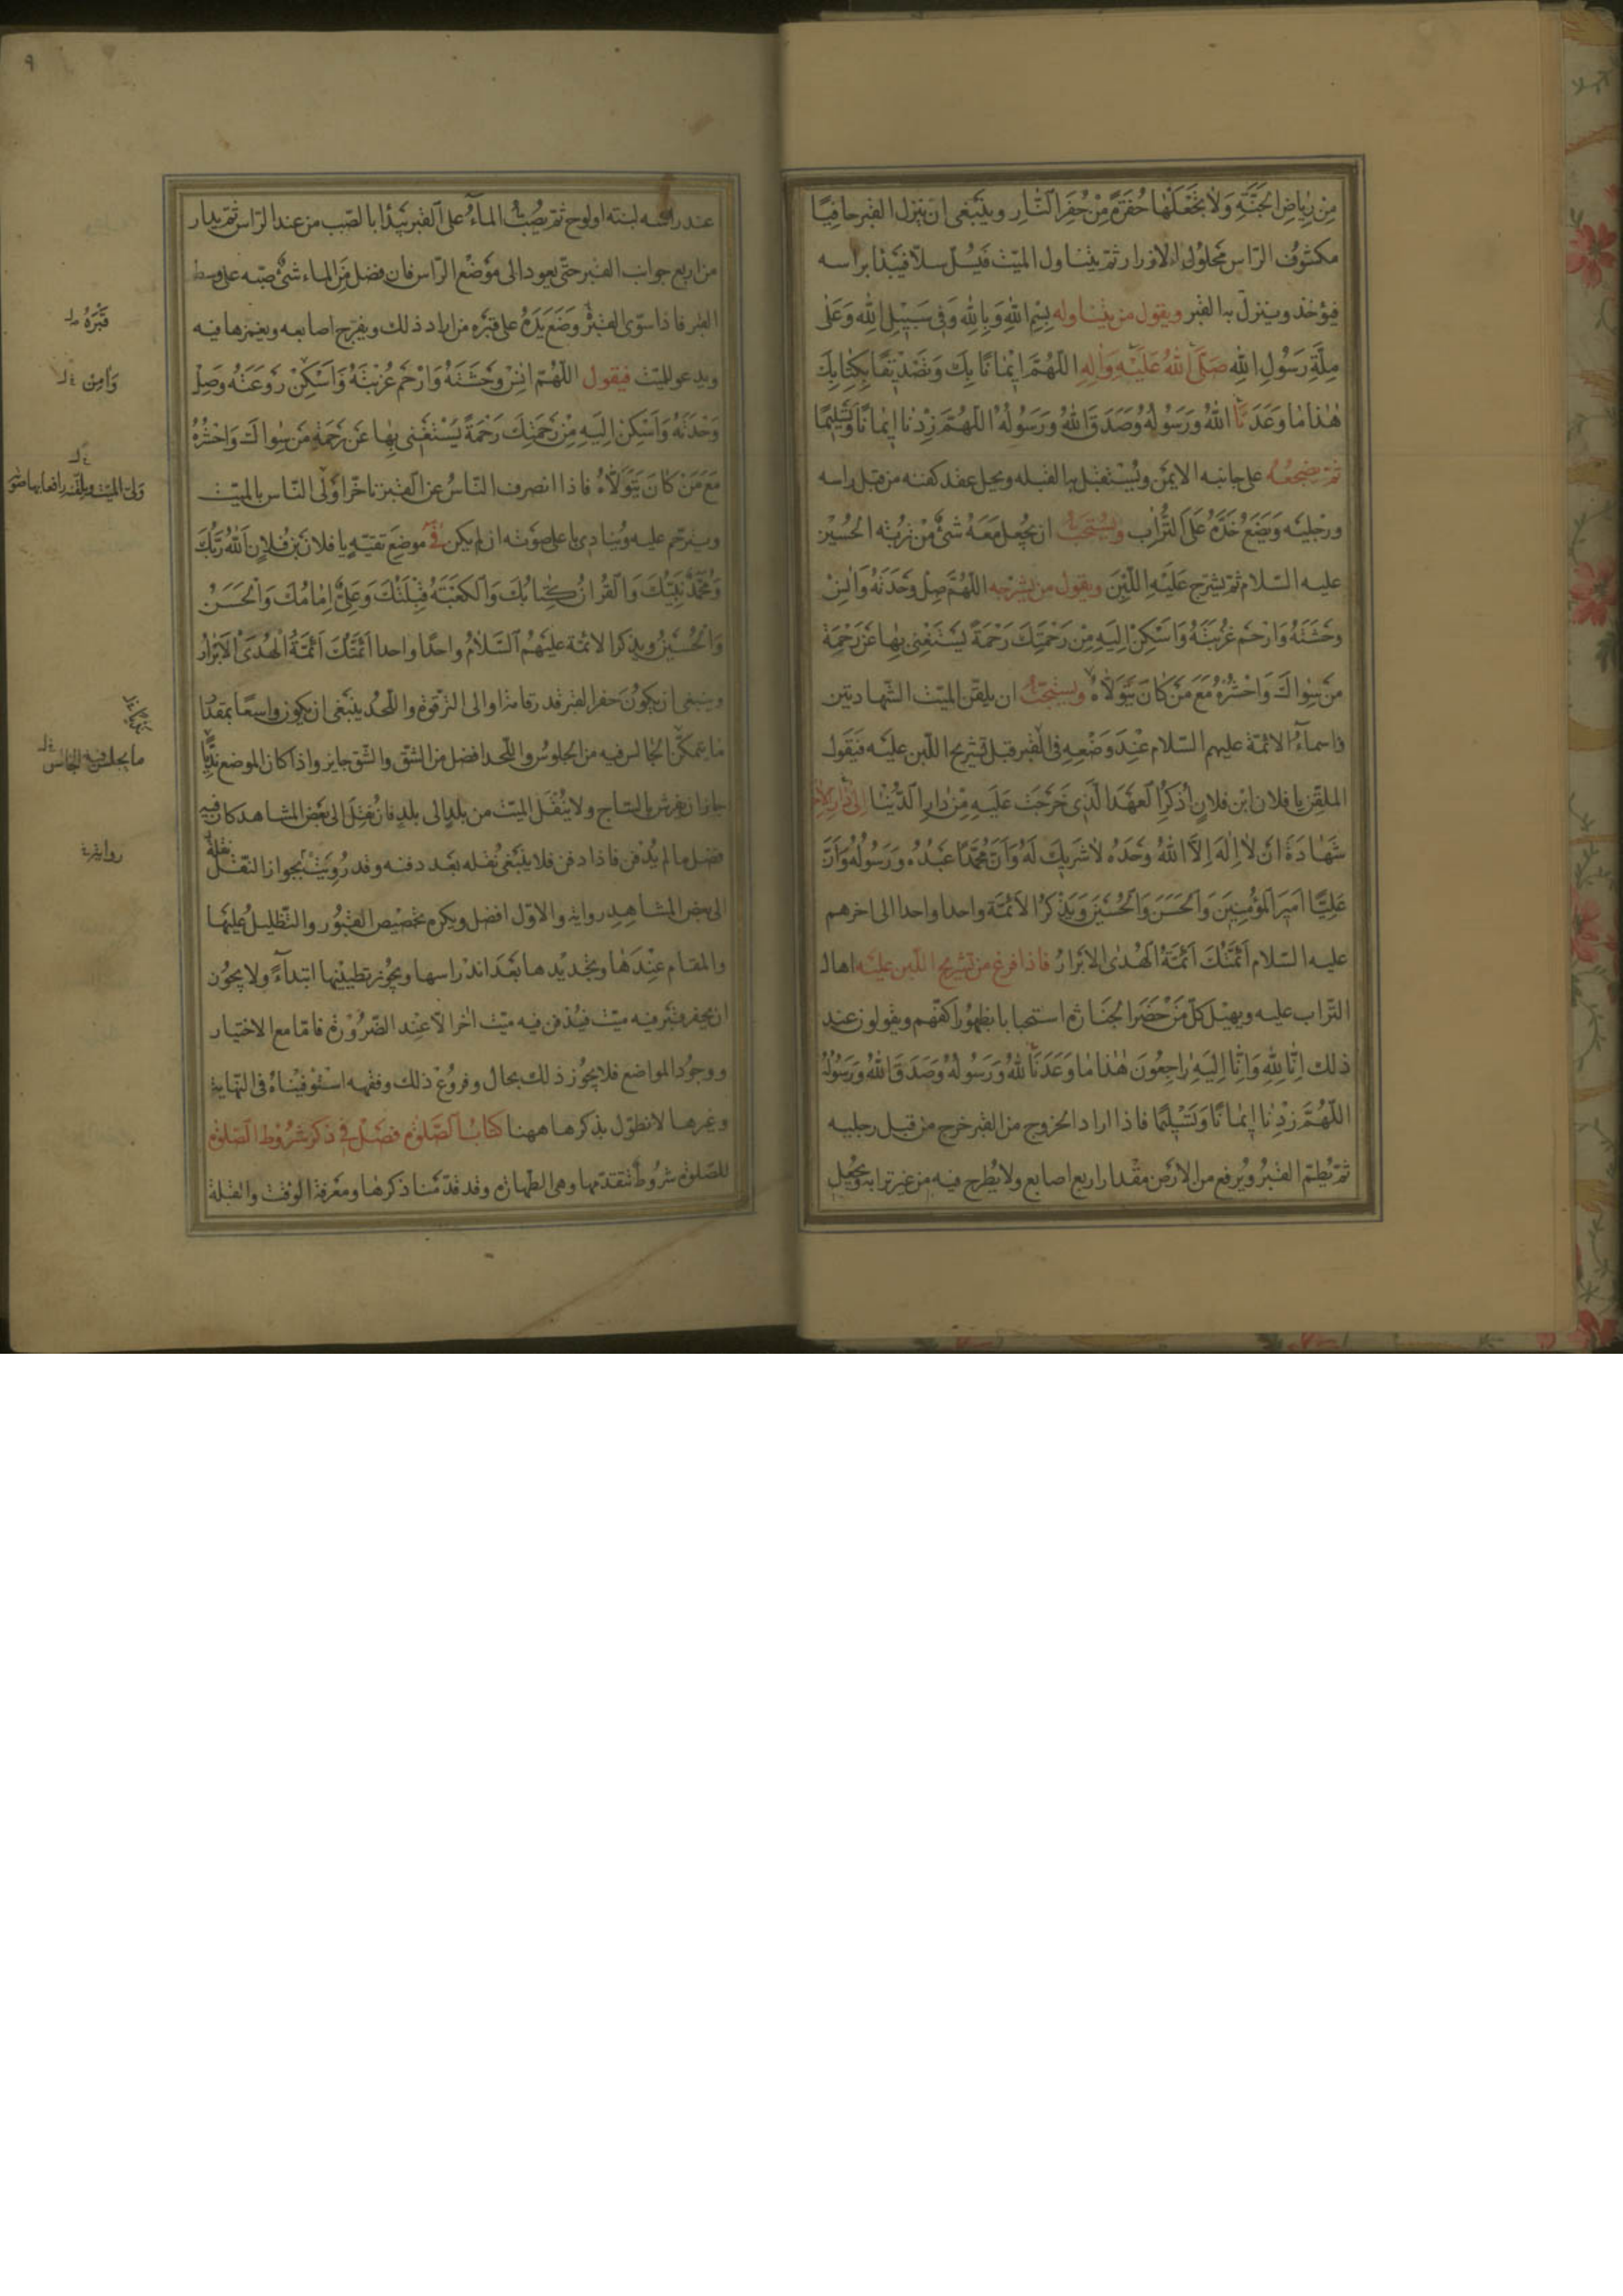 مِنْ رِيَاضِ الْجَنَّةِ وَلَا تَجْعَلْهَا حُفْرَةً مِنْ حُفَرِ النَّارِ وينبغى ان ينزل القبر حافيًا
مكشوف الرّاس محلول الازرار ثمّ يتناول الميّت فيُسلّ سلّا فيبدأ براسه
فيؤخذ وينزل به القبر ويقول من يتناوله بِسْمِ اللهِ وَبِاللهِ وَفِى سَبِيْلِ اللهِ وَعَلٰى
مِلَّةِ رَسُولِ اللهِ صَلَّى اللهُ عَلَيْهِ وَاٰلِهِ اللّٰهُمَّ اِيْمَانًا بِكَ وَتَصْدِيْقًا بِكِتَابِكَ
هٰذَا مَا وَعَدَنَا اللهُ وَرَسُولُهُ وَصَدَقَ اللهُ وَرَسُولُهُ اللّٰهُمَّ زِدْنَا اِيْمَانًا وَتَسْلِيْمًا
ثمّ يضجعه على جانبه الايمن ويستقبل به القبله ويحل عقد كفنه من قبل راسه
ورجليه ويضع خدّه على التّراب ويستحبّ ان يجعل معه شئ من تربته الحسين
عليه السّلام ثمّ يشرّج عليه اللّبن ويقول من يشرّجه اللّٰهُمَّ صِلْ وَحْدَتَهُ وَاٰنِسْ
وَحْشَتَهُ وَارْحَمْ غُرْبَتَهُ وَاَسْكِنْ اِلَيْهِ مِنْ رَحْمَتِكَ رَحْمَةً يَسْتَغْنِى بِهَا عَنْ رَحْمَةِ
مَنْ سِوَاكَ وَاحْشُرْهُ مَعَ مَنْ كَانَ يَتَوَلَّاهُ ويستحبّ ان يلقّن الميّت الشّهادتين
واسماء الائمّة عليهم السّلام عند وضعه فى القبر قبل تشريج اللّبن عليه فيقول
الملقّن يا فلان ابن فلان اُذْكُرِ الْعَهْدَ الَّذِى خَرَجْتَ عَلَيْهِ مِنْ دَارِ الدُّنْيَا
شَهَادَةَ اَنْ لَا اِلٰهَ اِلَّا اللهُ وَحْدَهُ لَا شَرِيْكَ لَهُ وَاَنَّ مُحَمَّدًا عَبْدُهُ وَرَسُولُهُ وَاَنَّ
عَلِيًّا اَمِيْرَ الْمُؤْمِنِيْنَ وَالْحَسَنَ وَالْحُسَيْنَ وَيَذْكُرُ الْاَئمَّةَ واحدا واحدا الى اخرهم
عليه السّلام اَئِمَّتُكَ اَئِمَّةُ الْهُدَى الْاَبْرَارُ فاذا فرغ من تشريج اللّبن عليه اهال
التّراب عليه ويهيل كلّ من حضر الجنازة استحبابا بظهور اكفّهم ويقولون عند
ذلك اِنَّا لِلّٰهِ وَاِنَّا اِلَيْهِ رَاجِعُونَ هٰذَا مَا وَعَدَنَا اللهُ وَرَسُولُهُ وَصَدَقَ اللهُ وَرَسُولُهُ
اللّٰهُمَّ زِدْنَا اِيْمَانًا وَتَسْلِيْمًا فاذا اراد الخروج من القبر خرج من قبل رجليه
ثمّ يُطمّ القبر ويُرفع من الارض مقدار اربع اصابع ولا يُطرح فيه من غير ترابه ويجعل
٩
عند راسه لبنة او لوح ثمّ يصبّ الماء على القبر يبدأ بالصّب من عند الرّاس ثمّ يدار
من اربع جوانب القبر حتّى يعود الى موضع الرّاس فان فضل من الماء شئ صبّه على وسط
القبر فاذا سوّى القبر وضع يده على قبره من اراد ذلك ويفرّج اصابعه ويغمزها فيه
ويدعو للميّت فيقول اللّٰهُمَّ اٰنِسْ وَحْشَتَهُ وَارْحَمْ غُرْبَتَهُ وَاَسْكِنْ رَوْعَتَهُ وَصِلْ
وَحْدَتَهُ وَاَسْكِنْ اِلَيْهِ مِنْ رَحْمَتِكَ رَحْمَةً يَسْتَغْنِى بِهَا عَنْ رَحْمَةِ مَنْ سِوَاكَ وَاحْشُرْهُ
مَعَ مَنْ كَانَ يَتَوَلَّاهُ فاذا انصرف النّاس عن القبر تاخّر اولى النّاس بالميّت
ويترحّم عليه وينادى باعلى صوته ان لم يكن فى موضع تقيّه يا فلان بن فلان اَللهُ رَبُّكَ
وَمُحَمَّدٌ نَبِيُّكَ وَالْقُرْاٰنُ كِتَابُكَ وَالْكَعْبَةُ قِبْلَتُكَ وَعَلِىٌّ اِمَامُكَ وَالْحَسَنُ
وَالْحُسَيْنُ ويذكر الائمّة عليهم السّلام واحدًا واحدا اَئِمَّتُكَ اَئِمَّةُ الْهُدَى الْاَبْرَارُ
وينبغى ان يكون حفر القبر قدر قامة او الى الترقوة واللّحد ينبغى ان يكون واسعًا بمقدار
ما يتمكّن الجالس فيه من الجلوس واللّحد افضل من الشّقّ والشّق جايز واذا كان الموضع نديًّا
جاز ان يفرش بالسّاج ولا ينقل الميّت من بلد الى بلد فان نقل الى بعض المشاهد كان فيه
فضل ما لم يُدْفن فاذا دفن فلا ينبغى نقله بعد دفنه وقد رُوِيَتْ بجواز النّقل نقله
الى بعض المشاهد رواية والاوّل افضل ويكره تجصيص القبور والتّظليل عليها
والمقام عندها وتجديدها بعد اندراسها ويجوز تطيينها ابتداءً ولا يجوز
ان يحفر قبر فيه ميّت فيُدْفن فيه ميّت اٰخر الّا عند الضّرورة فامّا مع الاختيار
ووجود المواضع فلا يجوز ذلك بحال وفروع ذلك وفقهه استوفيناه فى النّهاية
وغيرها لا نطوّل بذكرها ههنا كتاب الصّلوة فصل فى ذكر شروط الصّلوة
للصّلوة شروط تتقدّمها وهى الطّهارة وقد قدّمنا ذكرها ومعرفة الوقت والقبلة
قَبْرَهُ
وَاٰمِنْ
ما يجلس فيه الجالس
رواية